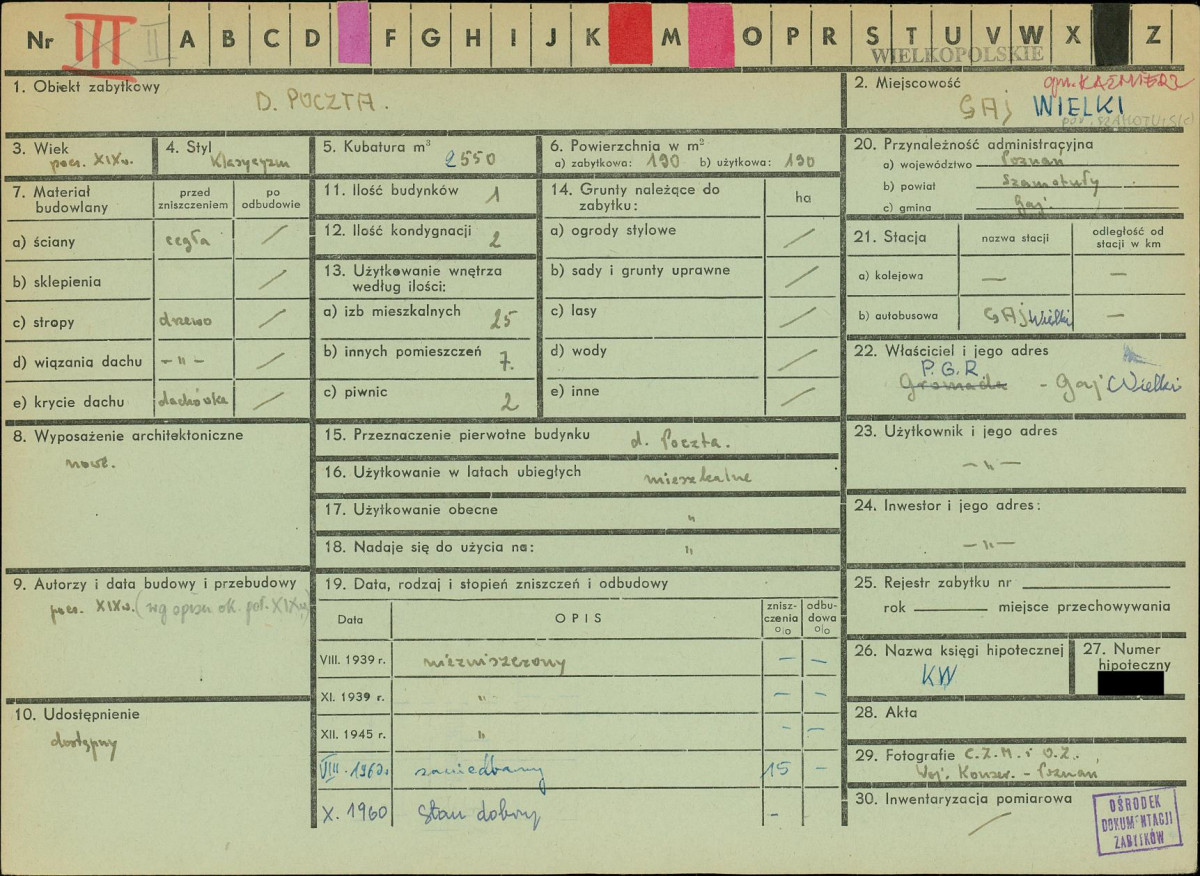 Nr III II A B C D F G H I J K M O P R S T U V W X Z
WIELKOPOLSKIE
1. Obiekt zabytkowy
D. POCZTA.
2. Miejscowość gm. KAŹMIERZ
GAJ WIELKI
pow. SZAMOTULSK(i)
3. Wiek
pocz. XIX w.
4. Styl
Klasycyzm
5. Kubatura m³
2550
6. Powierzchnia w m²
a) zabytkowa: 190 b) użytkowa: 190
20. Przynależność administracyjna
a) województwo Poznań
b) powiat Szamotuły
c) gmina Gaj
7. Materiał budowlany
przed zniszczeniem
po odbudowie
a) ściany cegła /
b) sklepienia /
c) stropy drzewo /
d) wiązania dachu –"– /
e) krycie dachu dachówka /
11. Ilość budynków 1
12. Ilość kondygnacji 2
13. Użytkowanie wnętrza
według ilości:
a) izb mieszkalnych 25
b) innych pomieszczeń 7.
c) piwnic 2
14. Grunty należące do
zabytku:
ha
a) ogrody stylowe /
b) sady i grunty uprawne /
c) lasy /
d) wody /
e) inne /
21. Stacja
nazwa stacji
odległość od
stacji w km
a) kolejowa — —
b) autobusowa GAJ Wielki —
22. Właściciel i jego adres
P.G.R.
Gromada - Gaj Wielki
8. Wyposażenie architektoniczne
nowe.
15. Przeznaczenie pierwotne budynku d. Poczta.
16. Użytkowanie w latach ubiegłych mieszkalne
17. Użytkowanie obecne "
18. Nadaje się do użycia na: "
23. Użytkownik i jego adres
–"–
24. Inwestor i jego adres:
–"–
9. Autorzy i data budowy i przebudowy
pocz. XIX w. (wg opisu ok. poł. XIX w.)
10. Udostępnienie
dostępny
19. Data, rodzaj i stopień zniszczeń i odbudowy
Data
OPIS
znisz-
czenia
%
odbu-
dowa
%
VIII. 1939 r. niezniszczony – –
XI. 1939 r. " – –
XII. 1945 r. " – –
VIII. 1960 r. zaniedbany 15 –
X. 1960 Stan dobry – –
25. Rejestr zabytku nr
rok miejsce przechowywania
26. Nazwa księgi hipotecznej
KW
27. Numer
hipoteczny
28. Akta
29. Fotografie C.Z.M. i O.Z.,
Woj. Konser. – Poznań
30. Inwentaryzacja pomiarowa
/
OŚRODEK
DOKUMENTACJI
ZABYTKÓW